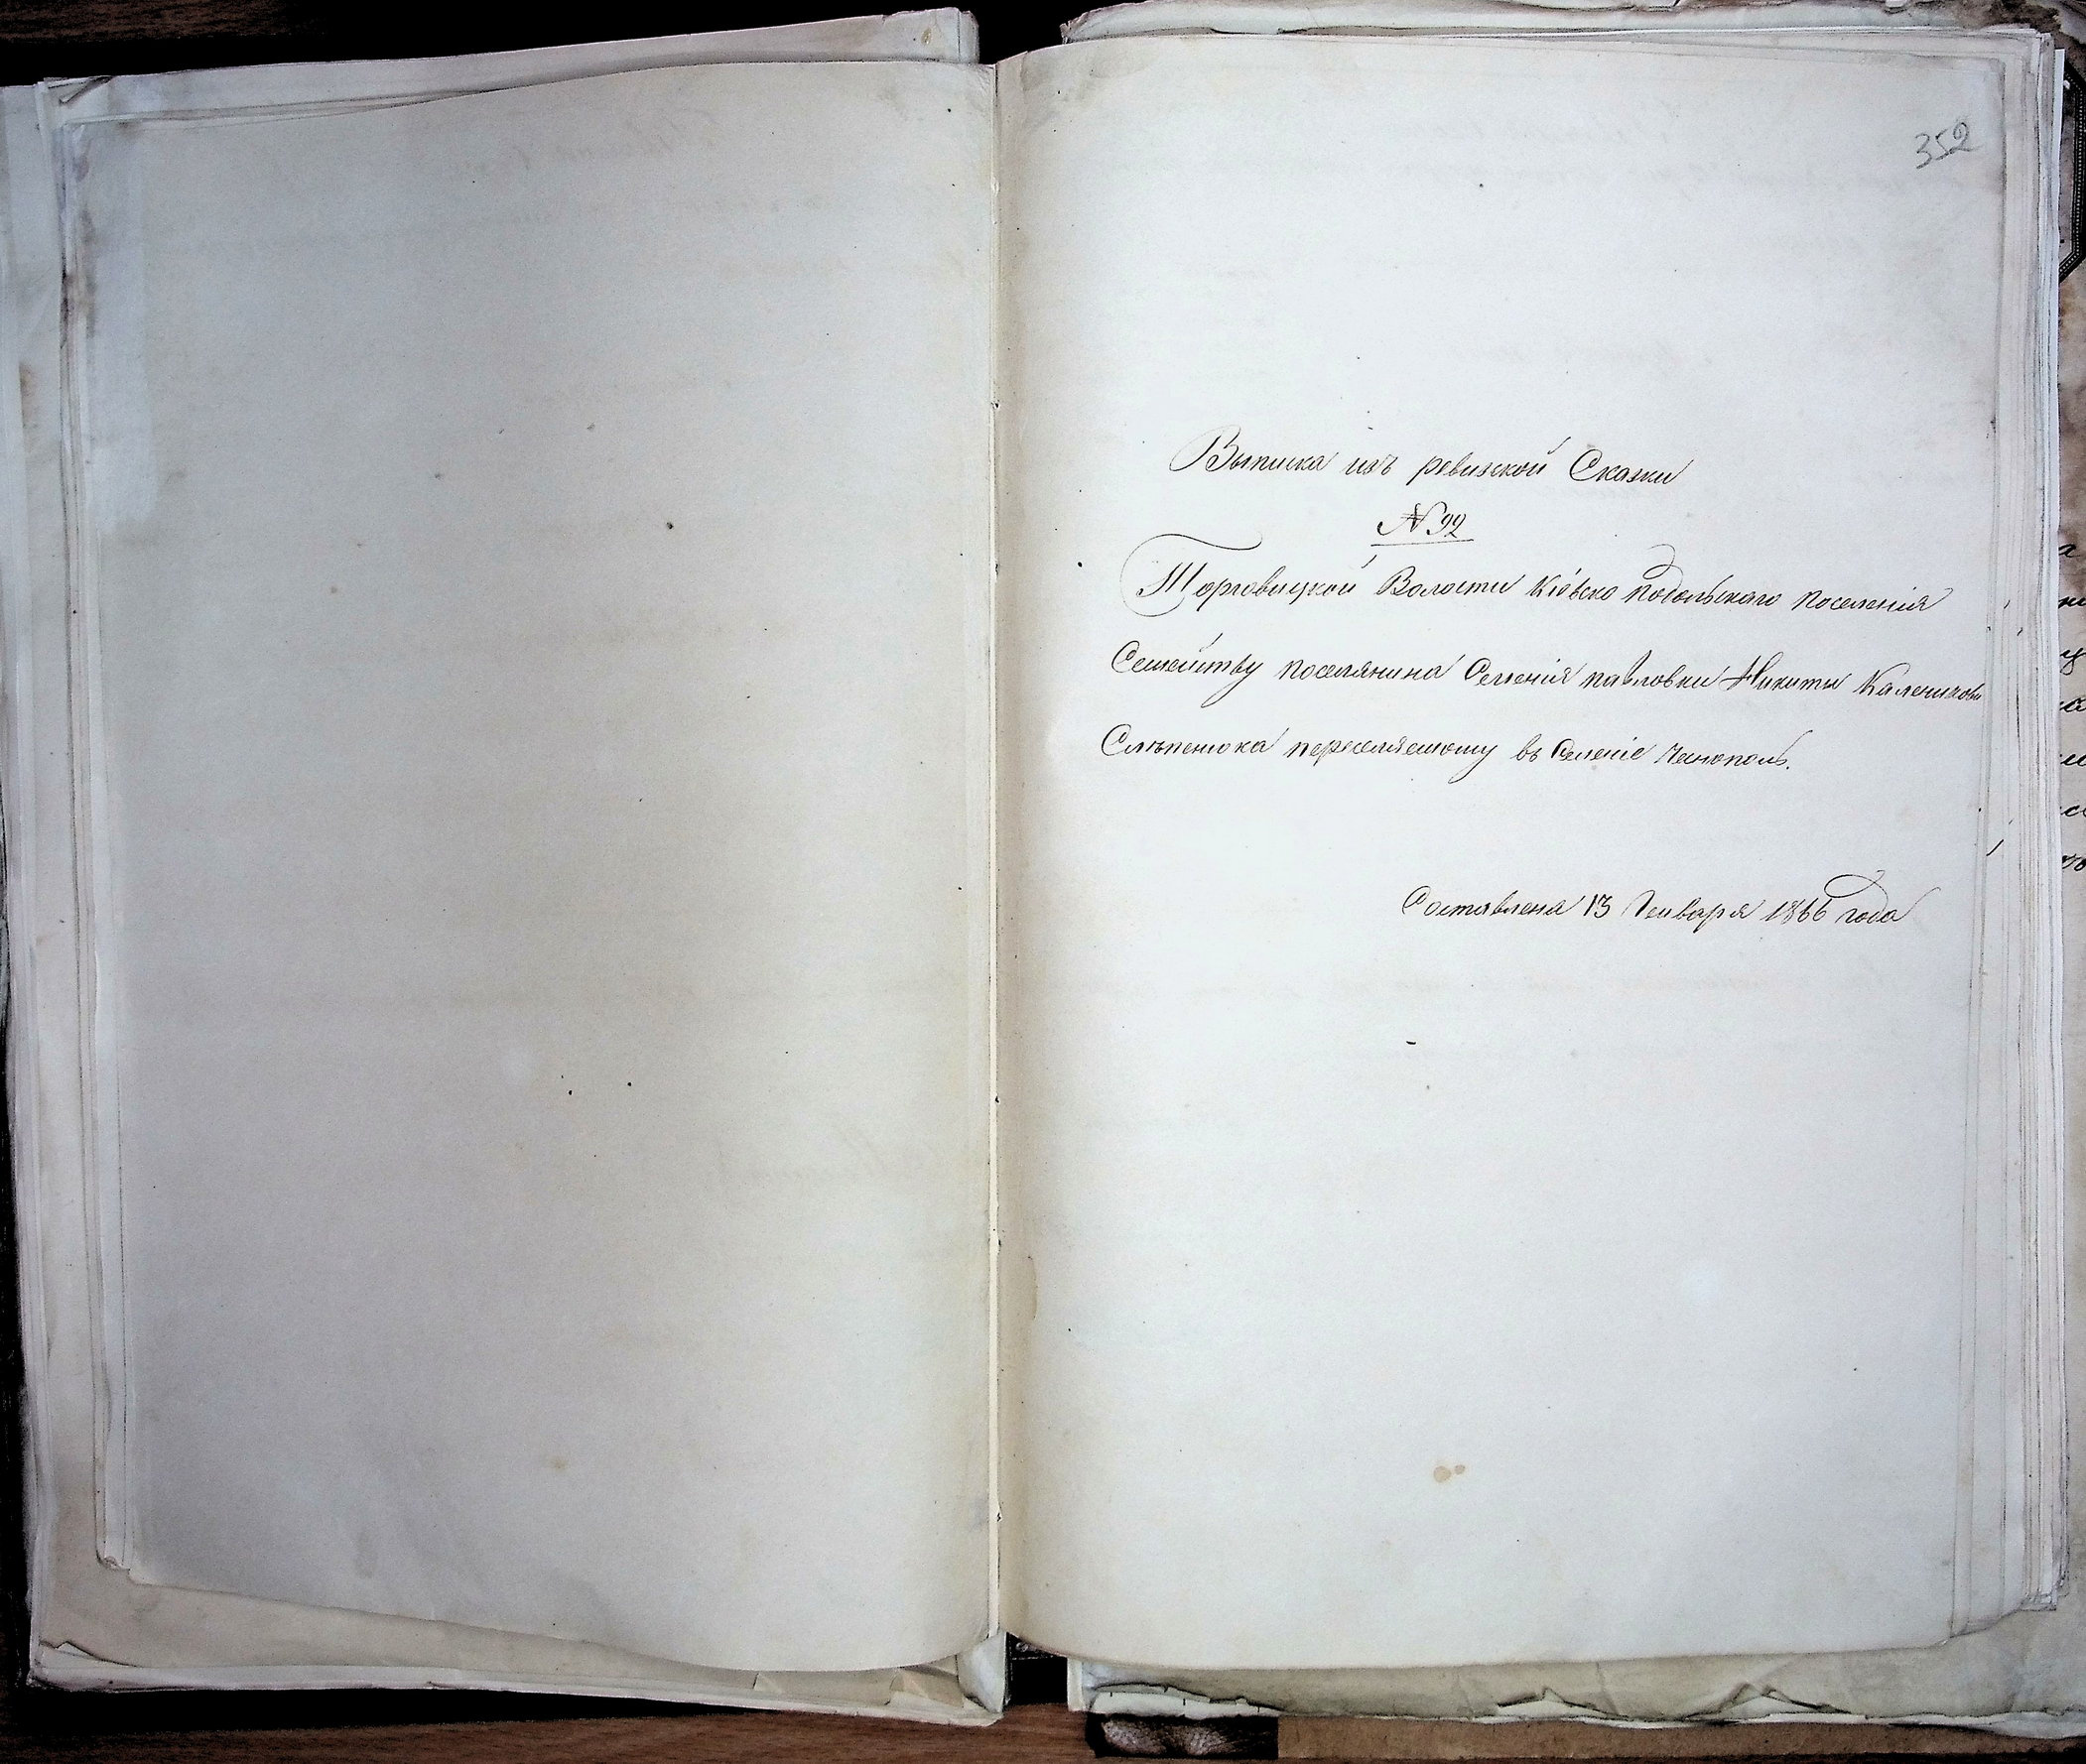 352
Выписка изъ ревизкой Сказки
№ 92
Торговицкой Волости Кіевско подольскаго поселенія
Семейству поселянина Селенія павловки Никиты
Слѣпенюка переселяемому въ Селеніе Яснополь.
Составлена 13 Генваря 1866 года